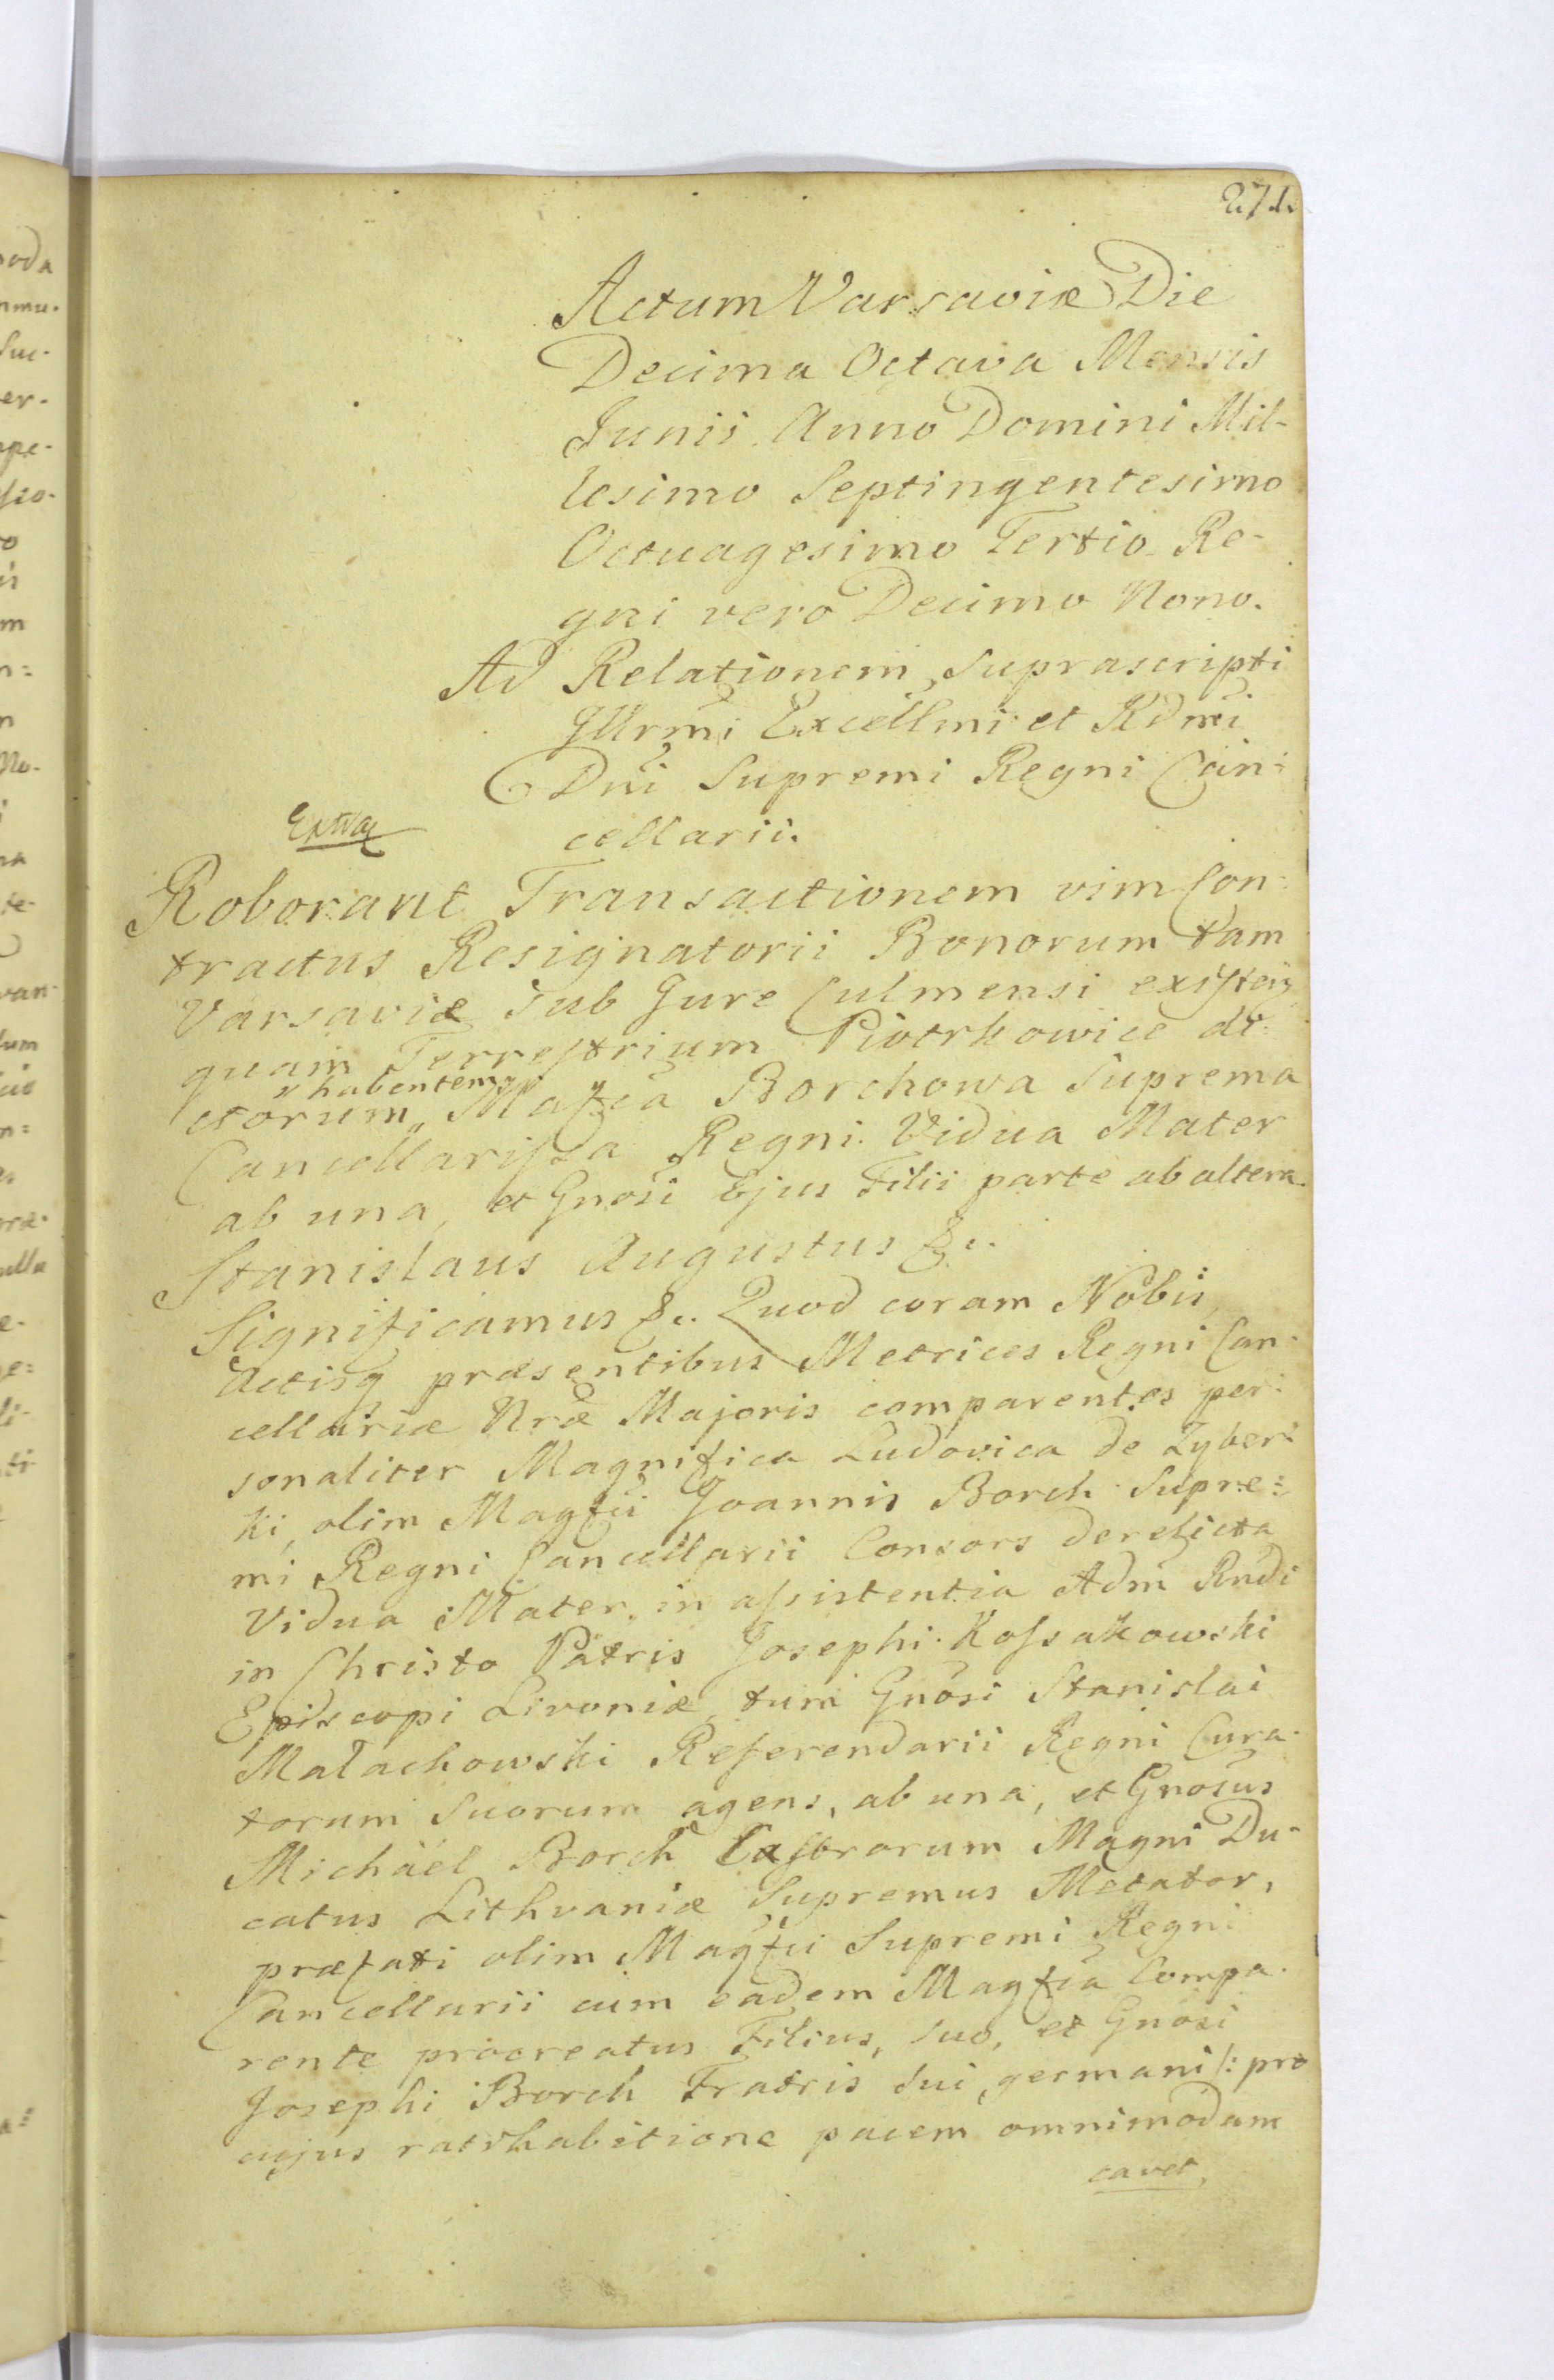 271.
Actum Varsaviæ Die
Decima Octava Mensis
Junii Anno Domini Mil-
lesimo Septingentesimo
Octuagesimo Tertio Re-
gni vero Decimo Nono.
Ad Relationem Suprascripti
Illrmi Excellmi et Rdmi
Dni Supremi Regni Can-
cellarii.
Roborant Transactionem vim Con-
tractus Resignatorii Bonorum tam
Varsaviæ sub Jure Culmensi existen
quam Terrestrium Piotrkowice di-
" habentem
ctorum " Magfca Borchowa Suprema
Cancellarissa Regni Vidua Mater
ab una, et Gnosi Ejus Filii parte ab altera.
Stanislaus Augustus &c.
Significamus &c. Quod coram Nobis,
Actisq præsentibus Metrices Regni Can-
cellariæ Nræ Majoris comparentes per-
sonaliter Magnifica Ludovica de Zyber-
ki, olim Magfci Joannis Borch Supre=
mi Regni Cancellarii Consors derelicta
Vidua Mater, in assistentia Adm Rndi
in Christo Patris Josephi Kossakowski
Episcopi Livoniæ, tum Gnosi Stanislai
Małachowski Referendarii Regni Cura-
torum suorum agens, ab una, et Gnosus
Michäel Borch Castrorum Magni Du-
catus Lithvaniæ Supremus Metator,
præfati olim Magfci Supremi Regni
Cancellarii cum eadem Magfca Compa-
rente procreatus Filius, suo, et Gnosi
Josephi Borch Fratris sui germani /: pro
cujus ratihabitione pacem omnimodam
cavet,